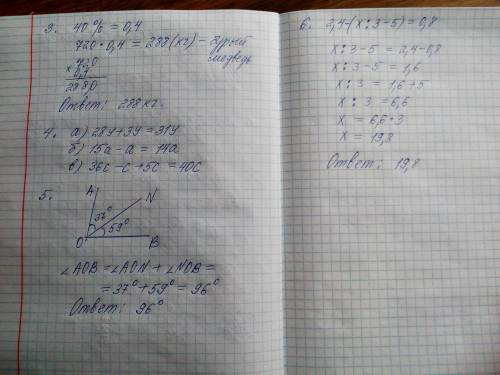 3. 40 % = 0,4
720 · 0,4 = 288 (кг) - бурый
медведь
х 720
0,4
2880
Ответ: 288 кг.
4. а) 28у+3у = 31у
б) 15а - а = 14а
в) 36с - с + 5с = 40с
5.
А N
37°
59°
О В
∠АОВ = ∠АОN + ∠NОВ =
= 37° + 59° = 96°
Ответ: 96°
6. 2,4-(х:3-5) = 0,8
х:3-5 = 2,4-0,8
х:3-5 = 1,6
х:3 = 1,6+5
х:3 = 6,6
х = 6,6·3
х = 19,8
Ответ: 19,8